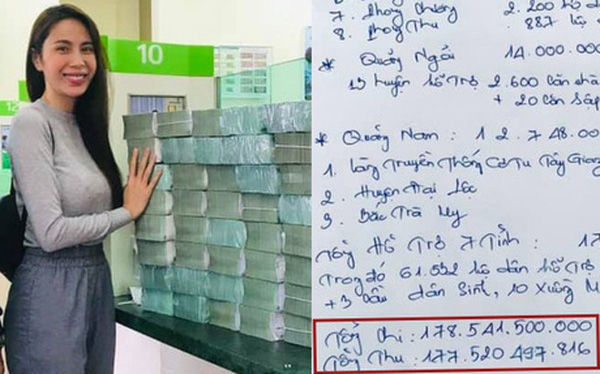 10
12
7. Phong Chương 2.200 hộ d
8. Phong Thu 887 hộ d
* Quảng Ngãi 14.000.000
13 huyện hỗ trợ 2.600 căn nhà
+ 20 căn sập
* Quảng Nam : 12.748.00
1. Làng Truyền Thống Cơ Tu Tây Giang
2. Huyện Đại Lộc
3. Bắc Trà My
Tổng Hỗ Trợ 7 Tỉnh : 17
Trong đó 61.532 hộ dân hỗ trợ
+ 3 cầu dân sinh, 10 xuồng M
Tổng Chi : 178.541.500.000
Tổng Thu : 177.520.497.816